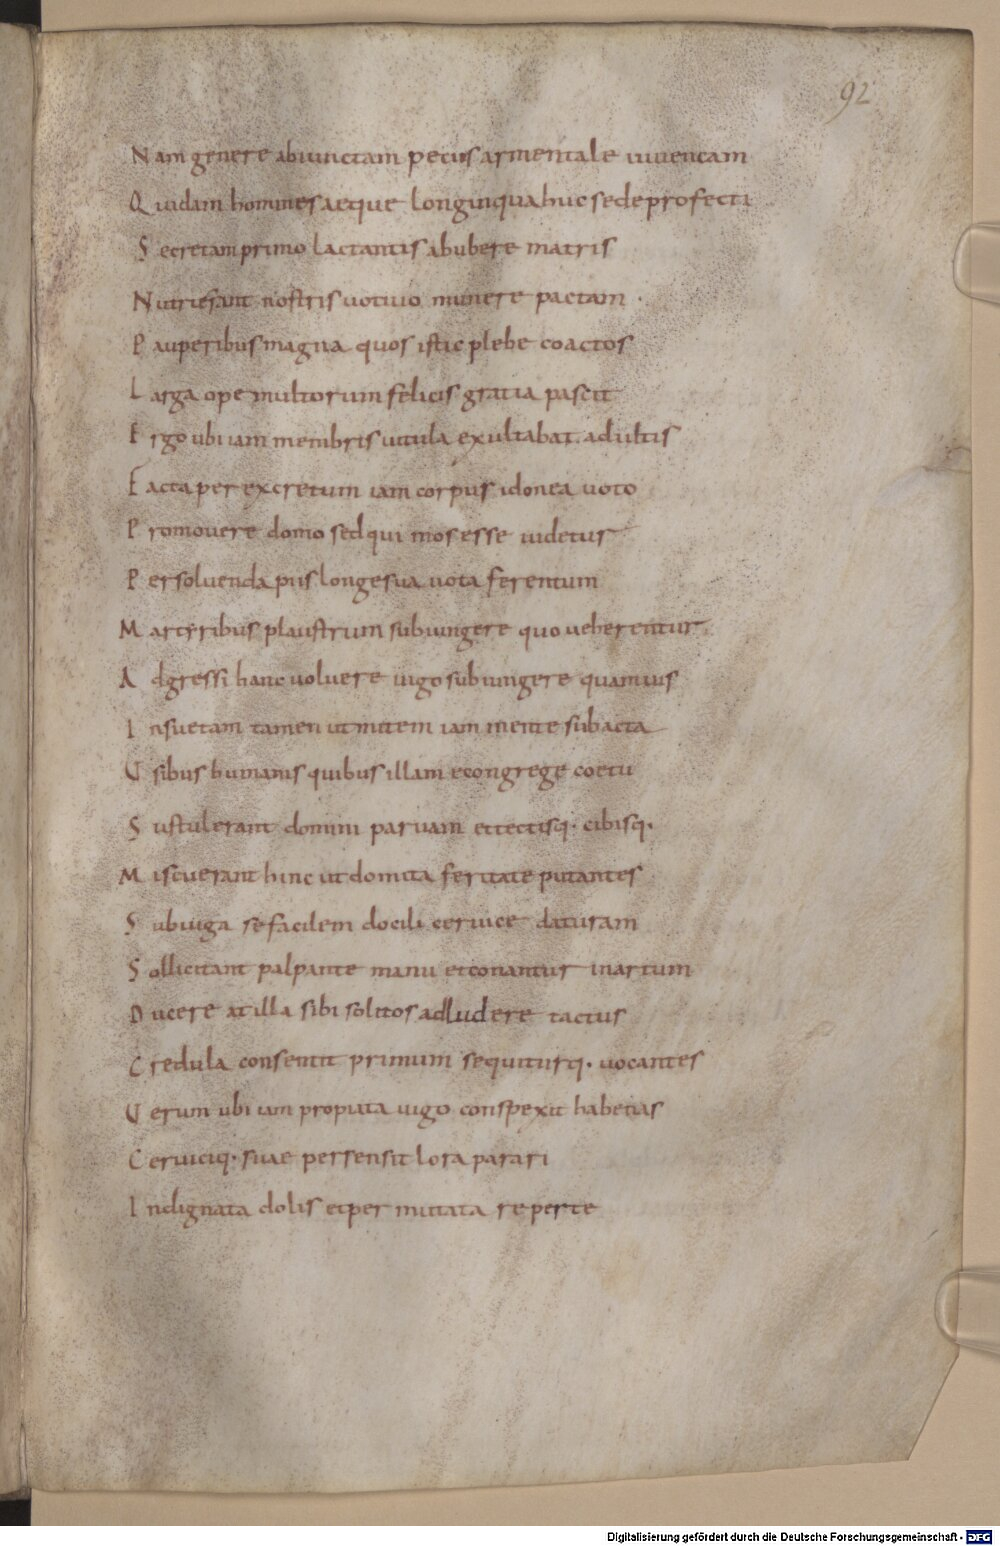 92
Nam genere abiunctam pecus armentale iuvencam
Quidam homines aeque longinqua huc sede profecti
Secretam primo lactantis ab ubere matris
Nutrierant nostris votivo munere pactam.
Pauperibus magna quos istic plebe coactos
Larga ope multorum felicis gratia pascit
Ergo ubi iam membris vitula exultabat adultis
Facta per excretum iam corpus idonea voto
Promovere domo sed qui mos esse videtur
Persolvenda piis longe sua vota ferentum
Martyribus plaustrum subiungere quo veherentur
Adgressi hanc voluere iugo subiungere quamuis
Insuetam tamen ut mitem iam mente subacta
Usibus humanis quibus illam e congrege coetu
Sustulerant domini parvam et tectisq· cibisq·
Miscuerant hinc ut domita feritate putantes
Sub iuga se facilem docili cervice daturam
Sollicitant palpante manu et conantur in artum
Ducere at illa sibi solitos adludere tactus
Credula consentit primum sequiturq· vocantes
Verum ubi iam propiata iugo conspexit habenas
Cerviciq· suae persensit lora parari
Indignata dolis et permutata reperte
Digitalisierung gefördert durch die Deutsche Forschungsgemeinschaft - DFG